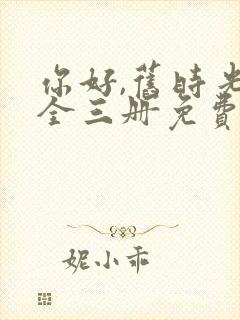 你好,舊時光
全三册免費
妮小乖